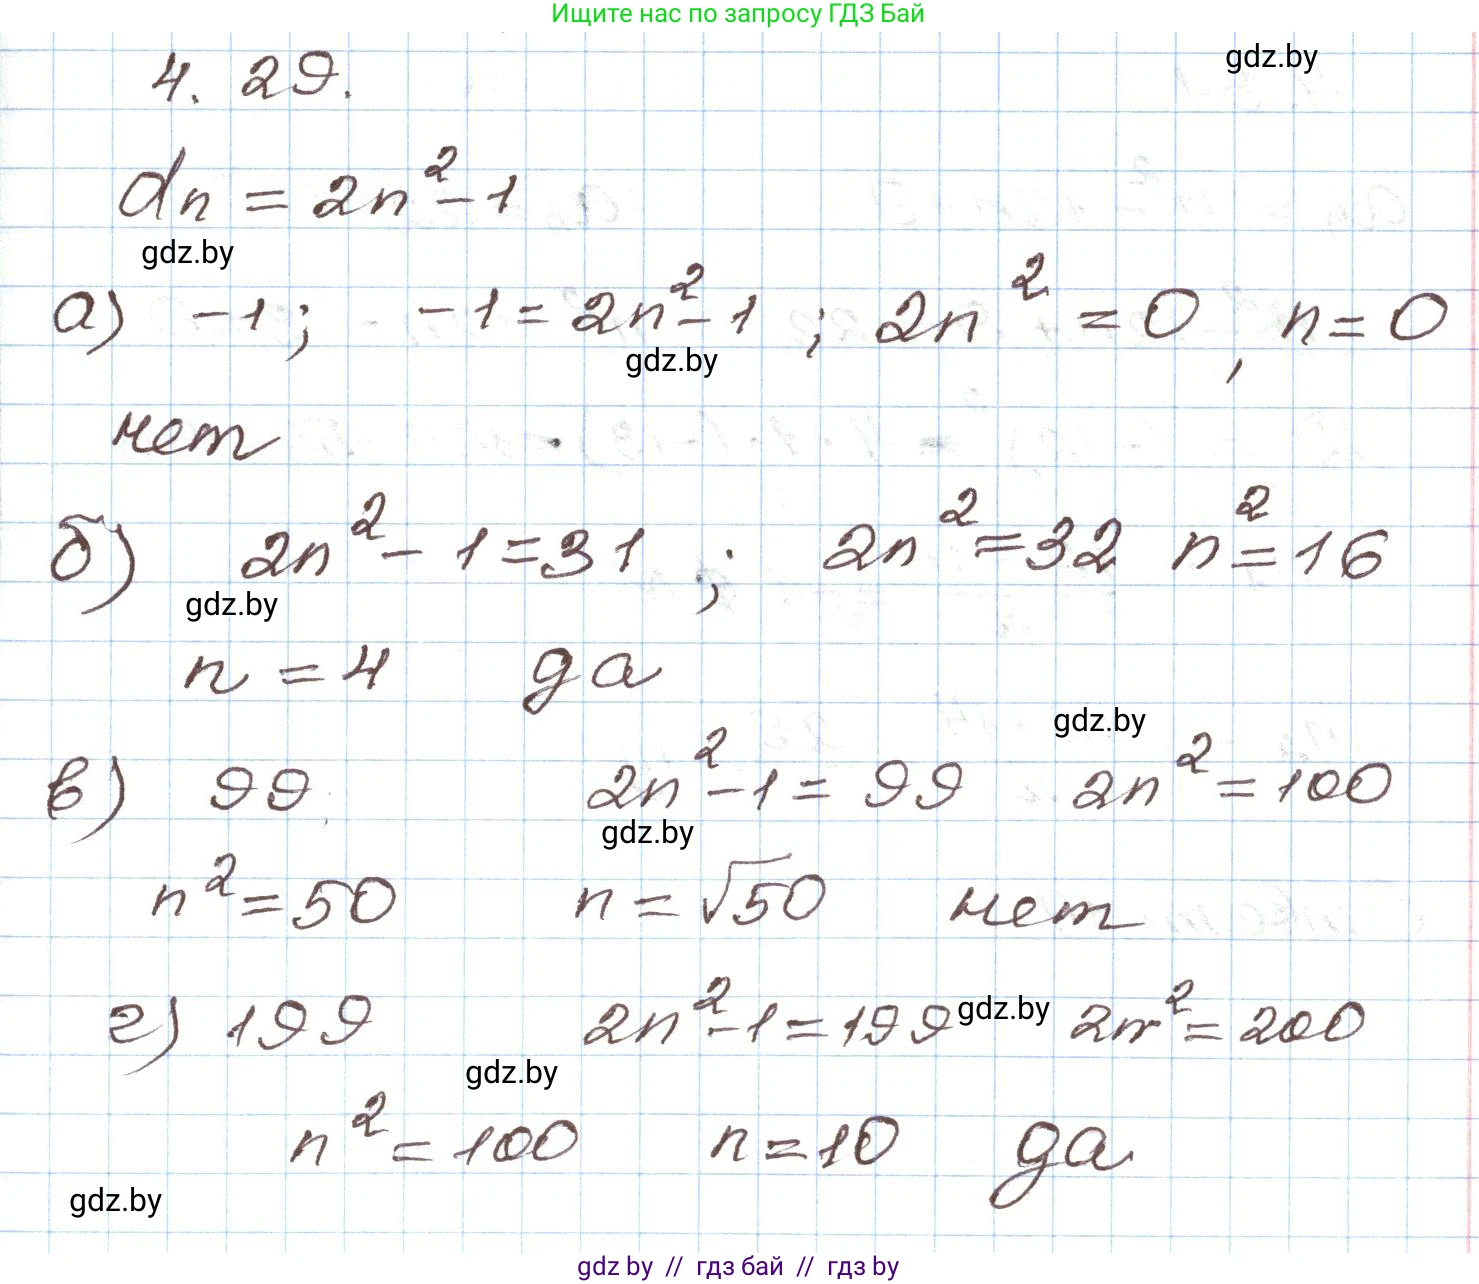 Ищите нас по запросу ГДЗ Бай
gdz.by
4. 29.
dn = 2n² - 1
gdz.by
а) -1; -1 = 2n² - 1 ; 2n² = 0, n = 0
gdz.by
нет
б) 2n² - 1 = 31 ; 2n² = 32 n² = 16
gdz.by
n = 4 да
gdz.by
в) 99 2n² - 1 = 99 2n² = 100
gdz.by
n² = 50 n = √50 нет
г) 199 2n² - 1 = 199 gdz.by 2n² = 200
gdz.by
n² = 100 n = 10 да
gdz.by
gdz by // гдз бай // гдз by